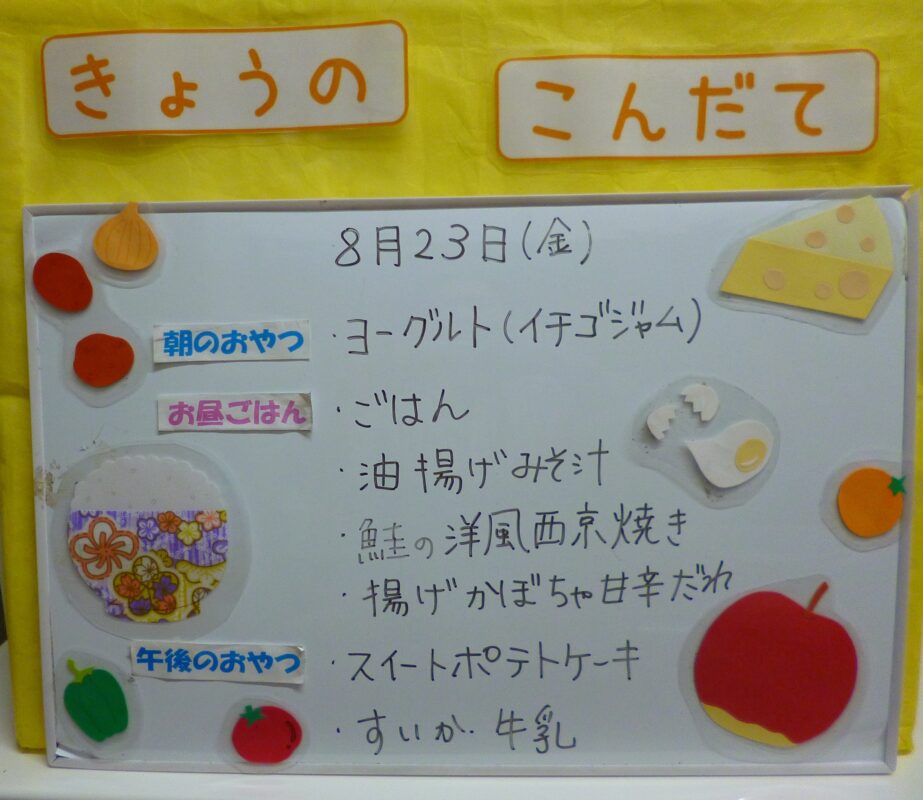 きょうの こんだて
8月23日(金)
朝のおやつ ・ヨーグルト(イチゴジャム)
お昼ごはん ・ごはん
・油揚げみそ汁
・鮭の洋風西京焼き
・揚げかぼちゃ甘辛だれ
午後のおやつ ・スイートポテトケーキ
・すいか・牛乳